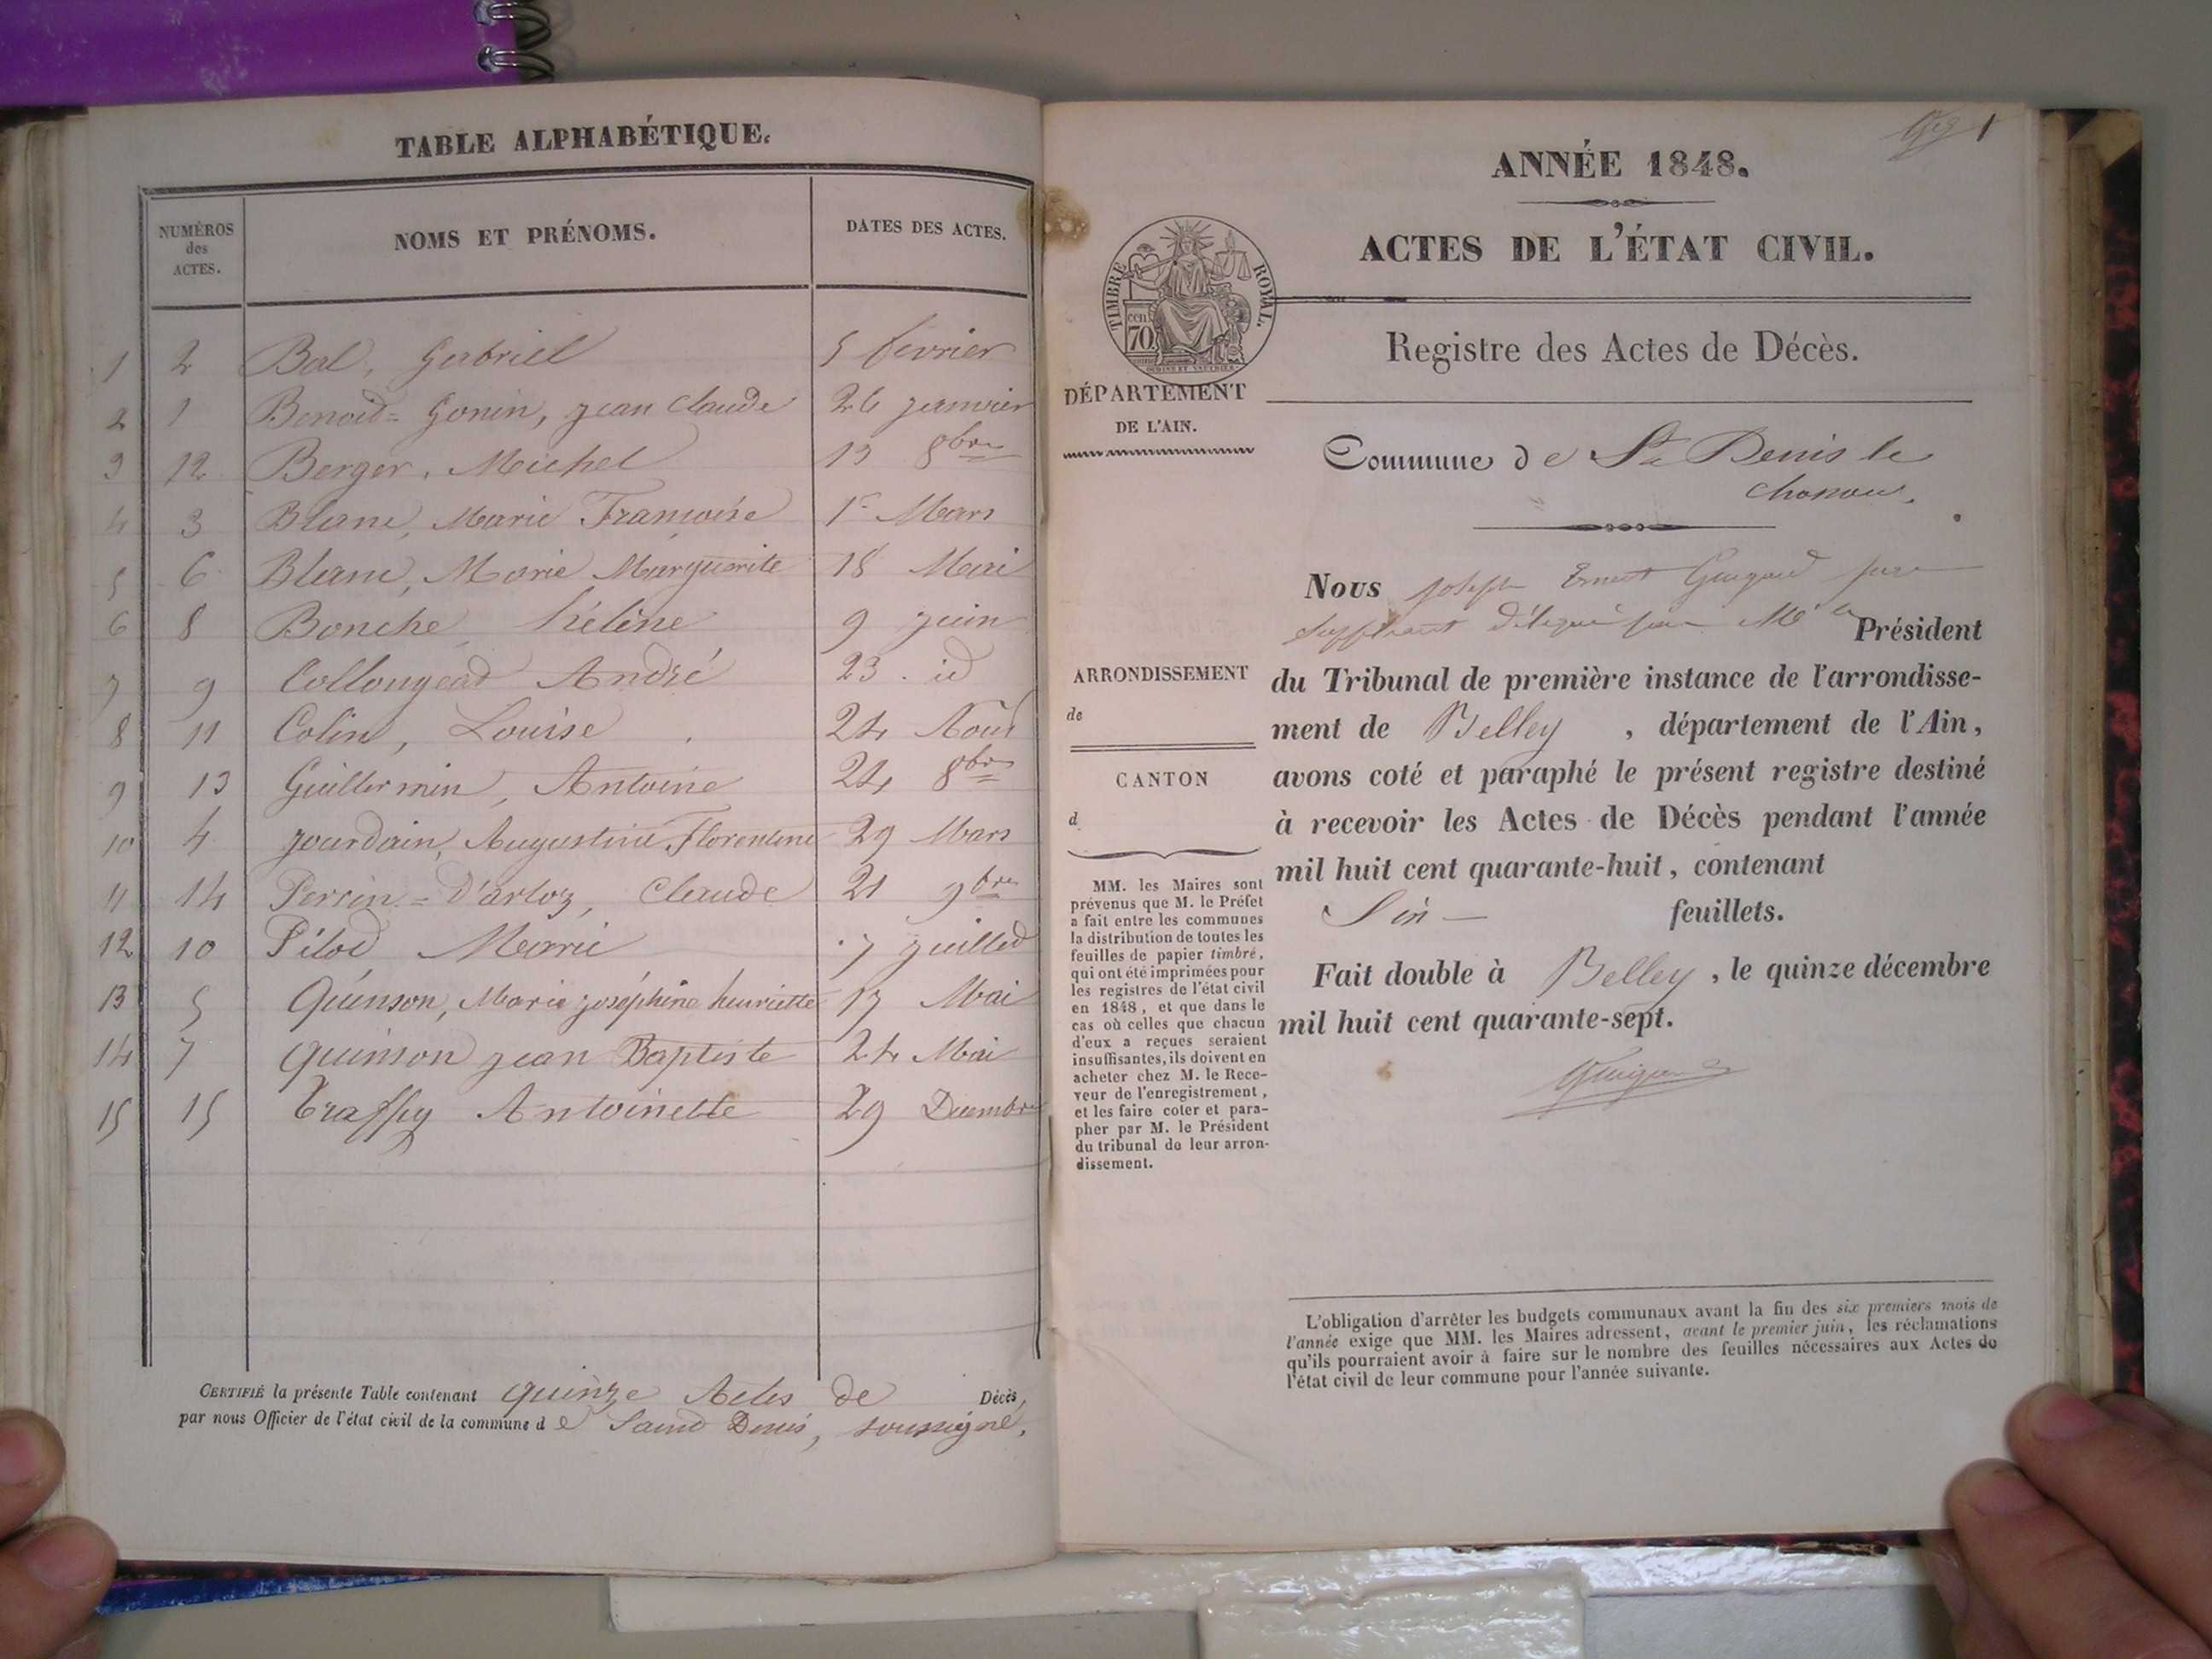 TABLE ALPHABÉTIQUE.
NUMÉROS des ACTES. NOMS ET PRÉNOMS. DATES DES ACTES.
1 2 Bal, Gabriel 5 février
2 1 Benoid= Gonin, jean Claude 26 janvier
3 12 Berger, Michel 13 8bre
4 3 Blanc, Marie Françoise 1r Mars
5 6 Blanc, Marie Marguerite 18 Mai
6 8 Bonche hélène 9 juin
7 9 Collongead André 23. id
8 11 Colin, Louise 24 Aout
9 13 Guillermin, Antoine 24 8bre
10 4 jourdain, Augustine Florentine 29 Mars
11 14 Perrin=D'arloz, Claude 21 9bre
12 10 Pilod Marie 7 juilled
13 5 Quinson, Marie joséphine henriette 17 Mai
14 7 quinson jean Baptiste 24 Mai
15 15 Traffey Antoinette 29 Decembre
CERTIFIÉ la présente Table contenant quinze Actes de Décès,
par nous Officier de l'état civil de la commune de Saind Denis, soussigné,
1
ANNÉE 1848.
ACTES DE L'ÉTAT CIVIL.
TIMBRE ROYAL.
cen. 70
Registre des Actes de Décès.
DÉPARTEMENT
DE L'AIN.
Commune de St Denis le
Chosson
Nous Joseph Ernest Guigard juge
suppléant délégué par Mr le Président
ARRONDISSEMENT
de
du Tribunal de première instance de l'arrondisse-
ment de Belley, département de l'Ain,
CANTON
d
avons coté et paraphé le présent registre destiné
à recevoir les Actes de Décès pendant l'année
mil huit cent quarante-huit, contenant
Six feuillets.
Fait double à Belley, le quinze décembre
mil huit cent quarante-sept.
Guigard
MM. les Maires sont
prévenus que M. le Préfet
a fait entre les communes
la distribution de toutes les
feuilles de papier timbré,
qui ont été imprimées pour
les registres de l'état civil
en 1848, et que dans le
cas où celles que chacun
d'eux a reçues seraient
insuffisantes, ils doivent en
acheter chez M. le Rece-
veur de l'enregistrement,
et les faire coter et para-
pher par M. le Président
du tribunal de leur arron-
dissement.
L'obligation d'arrêter les budgets communaux avant la fin des six premiers mois de
l'année exige que MM. les Maires adressent, avant le premier juin, les réclamations
qu'ils pourraient avoir à faire sur le nombre des feuilles nécessaires aux Actes de
l'état civil de leur commune pour l'année suivante.